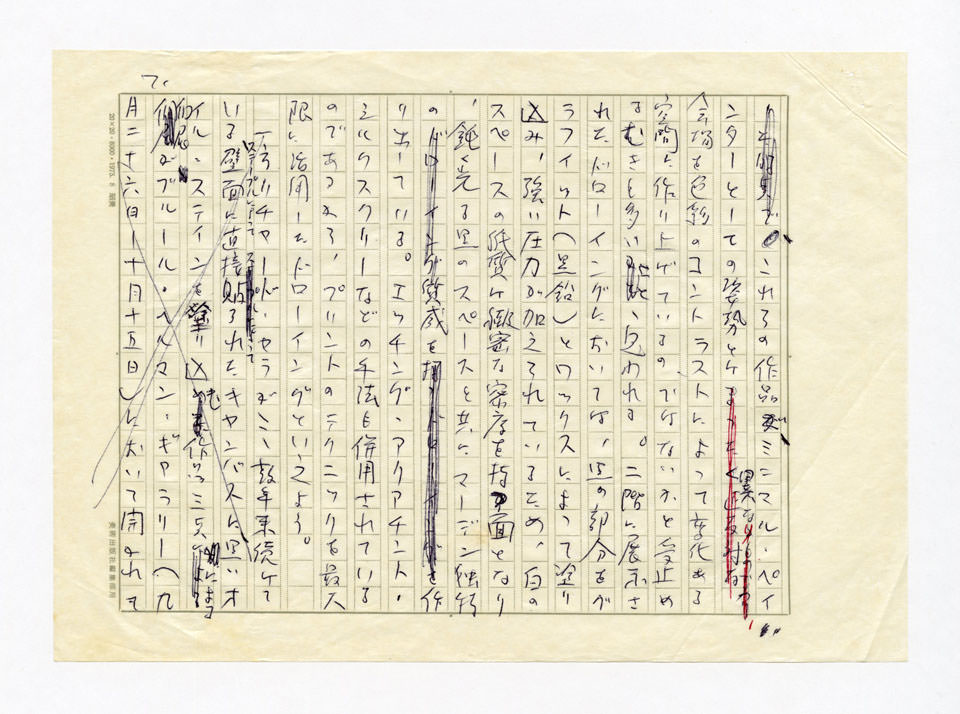 これらの作品がミニマル・ペイ
ンターとしての姿勢とは
異なり
会場を色彩のコントラストによって変化ある
空間に作り上げているのではないかと受止め
るむきも多いと思われる。二階に展示さ
れたドローイングにおいては、黒の部分をグ
ラファイト(黒鉛)とワックスによって塗り
込み、強い圧力が加えられているため、白の
スペースの紙質は緻密な密度を持つ面となり
、鈍く光る黒のスペースと共にマーデン独特
のドローイングを作
り出している。エッチング、アクアチント、
シルクスクリーンなどの手法も併用されている
のであるから、プリントのテクニックを最大
限に活用したドローイングといえよう。
一方リチャード・セラがここ数年来続けて
いる壁面に直接貼られたキャンバスに黒いオ
イル・スティックを塗り込めた作品三点による
個展がブルーム・ヘルマン・ギャラリー(九
月二十六日―十月十五日)において開かれて
20×20・6000・1975.8
て、